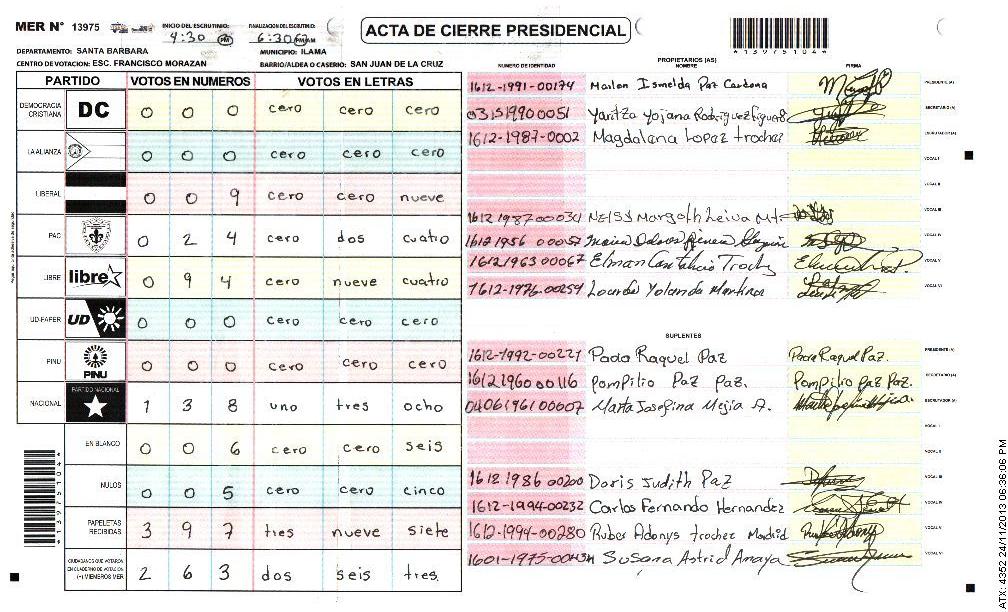 MER N° 13975
INICIO DEL ESCRUTINIO: 4:30 PM
FINALIZACION DEL ESCRUTINIO: 6:30 PM/AM
ACTA DE CIERRE PRESIDENCIAL
*13975104*
DEPARTAMENTO: SANTA BARBARA MUNICIPIO: ILAMA
CENTRO DE VOTACION: ESC. FRANCISCO MORAZAN BARRIO/ALDEA O CASERIO: SAN JUAN DE LA CRUZ
PARTIDO VOTOS EN NUMEROS VOTOS EN LETRAS
DEMOCRACIA CRISTIANA DC 0 0 0 cero cero cero
LA ALIANZA 0 0 0 cero cero cero
LIBERAL 0 0 9 cero cero nueve
PAC 0 2 4 cero dos cuatro
LIBRE libre 0 9 4 cero nueve cuatro
UD-FAPER UD 0 0 0 cero cero cero
PINU PINU 0 0 0 cero cero cero
NACIONAL PARTIDO NACIONAL 1 3 8 uno tres ocho
EN BLANCO 0 0 6 cero cero seis
NULOS 0 0 5 cero cero cinco
PAPELETAS RECIBIDAS 3 9 7 tres nueve siete
CIUDADANOS QUE VOTARON EN CUADERNO DE VOTACION (+) MIEMBROS MER 2 6 3 dos seis tres
*13975104*
PROPIETARIOS (AS)
NUMERO DE IDENTIDAD NOMBRE FIRMA
1612-1991-00174 Marlen Ismelda Paz Cardona PRESIDENTE (A)
0315199000051 Yaritza Yojana Rodriguez Figueroa SECRETARIO (A)
1612-1987-0002 Magdalana Lopez trochez ESCRUTADOR (A)
VOCAL I
VOCAL II
1612198700034 Margoth Leiva VOCAL III
1612 1956 00057 VOCAL IV
1612196300067 Elman VOCAL V
1612-1976-00254 Lourdes Yolanda Martinez VOCAL VI
SUPLENTES
1612-1992-00221 Paola Raquel Paz Paola Raquel Paz. PRESIDENTE (A)
1612196000116 Pompilio Paz Paz. Pompilio Paz Paz. SECRETARIO (A)
0406196100007 Marta Josefina Mejia A. ESCRUTADOR (A)
VOCAL I
VOCAL II
1612 1986 00200 Doris Judith Paz VOCAL III
1612-1994-00232 Carlos Fernando Hernandez VOCAL IV
1612-1994-00280 Ruber Adonys trochez Madrid VOCAL V
1601-1975- Susana Astrid Amaya VOCAL VI
ATX: 4352 24/11/2013 06:36:06 PM